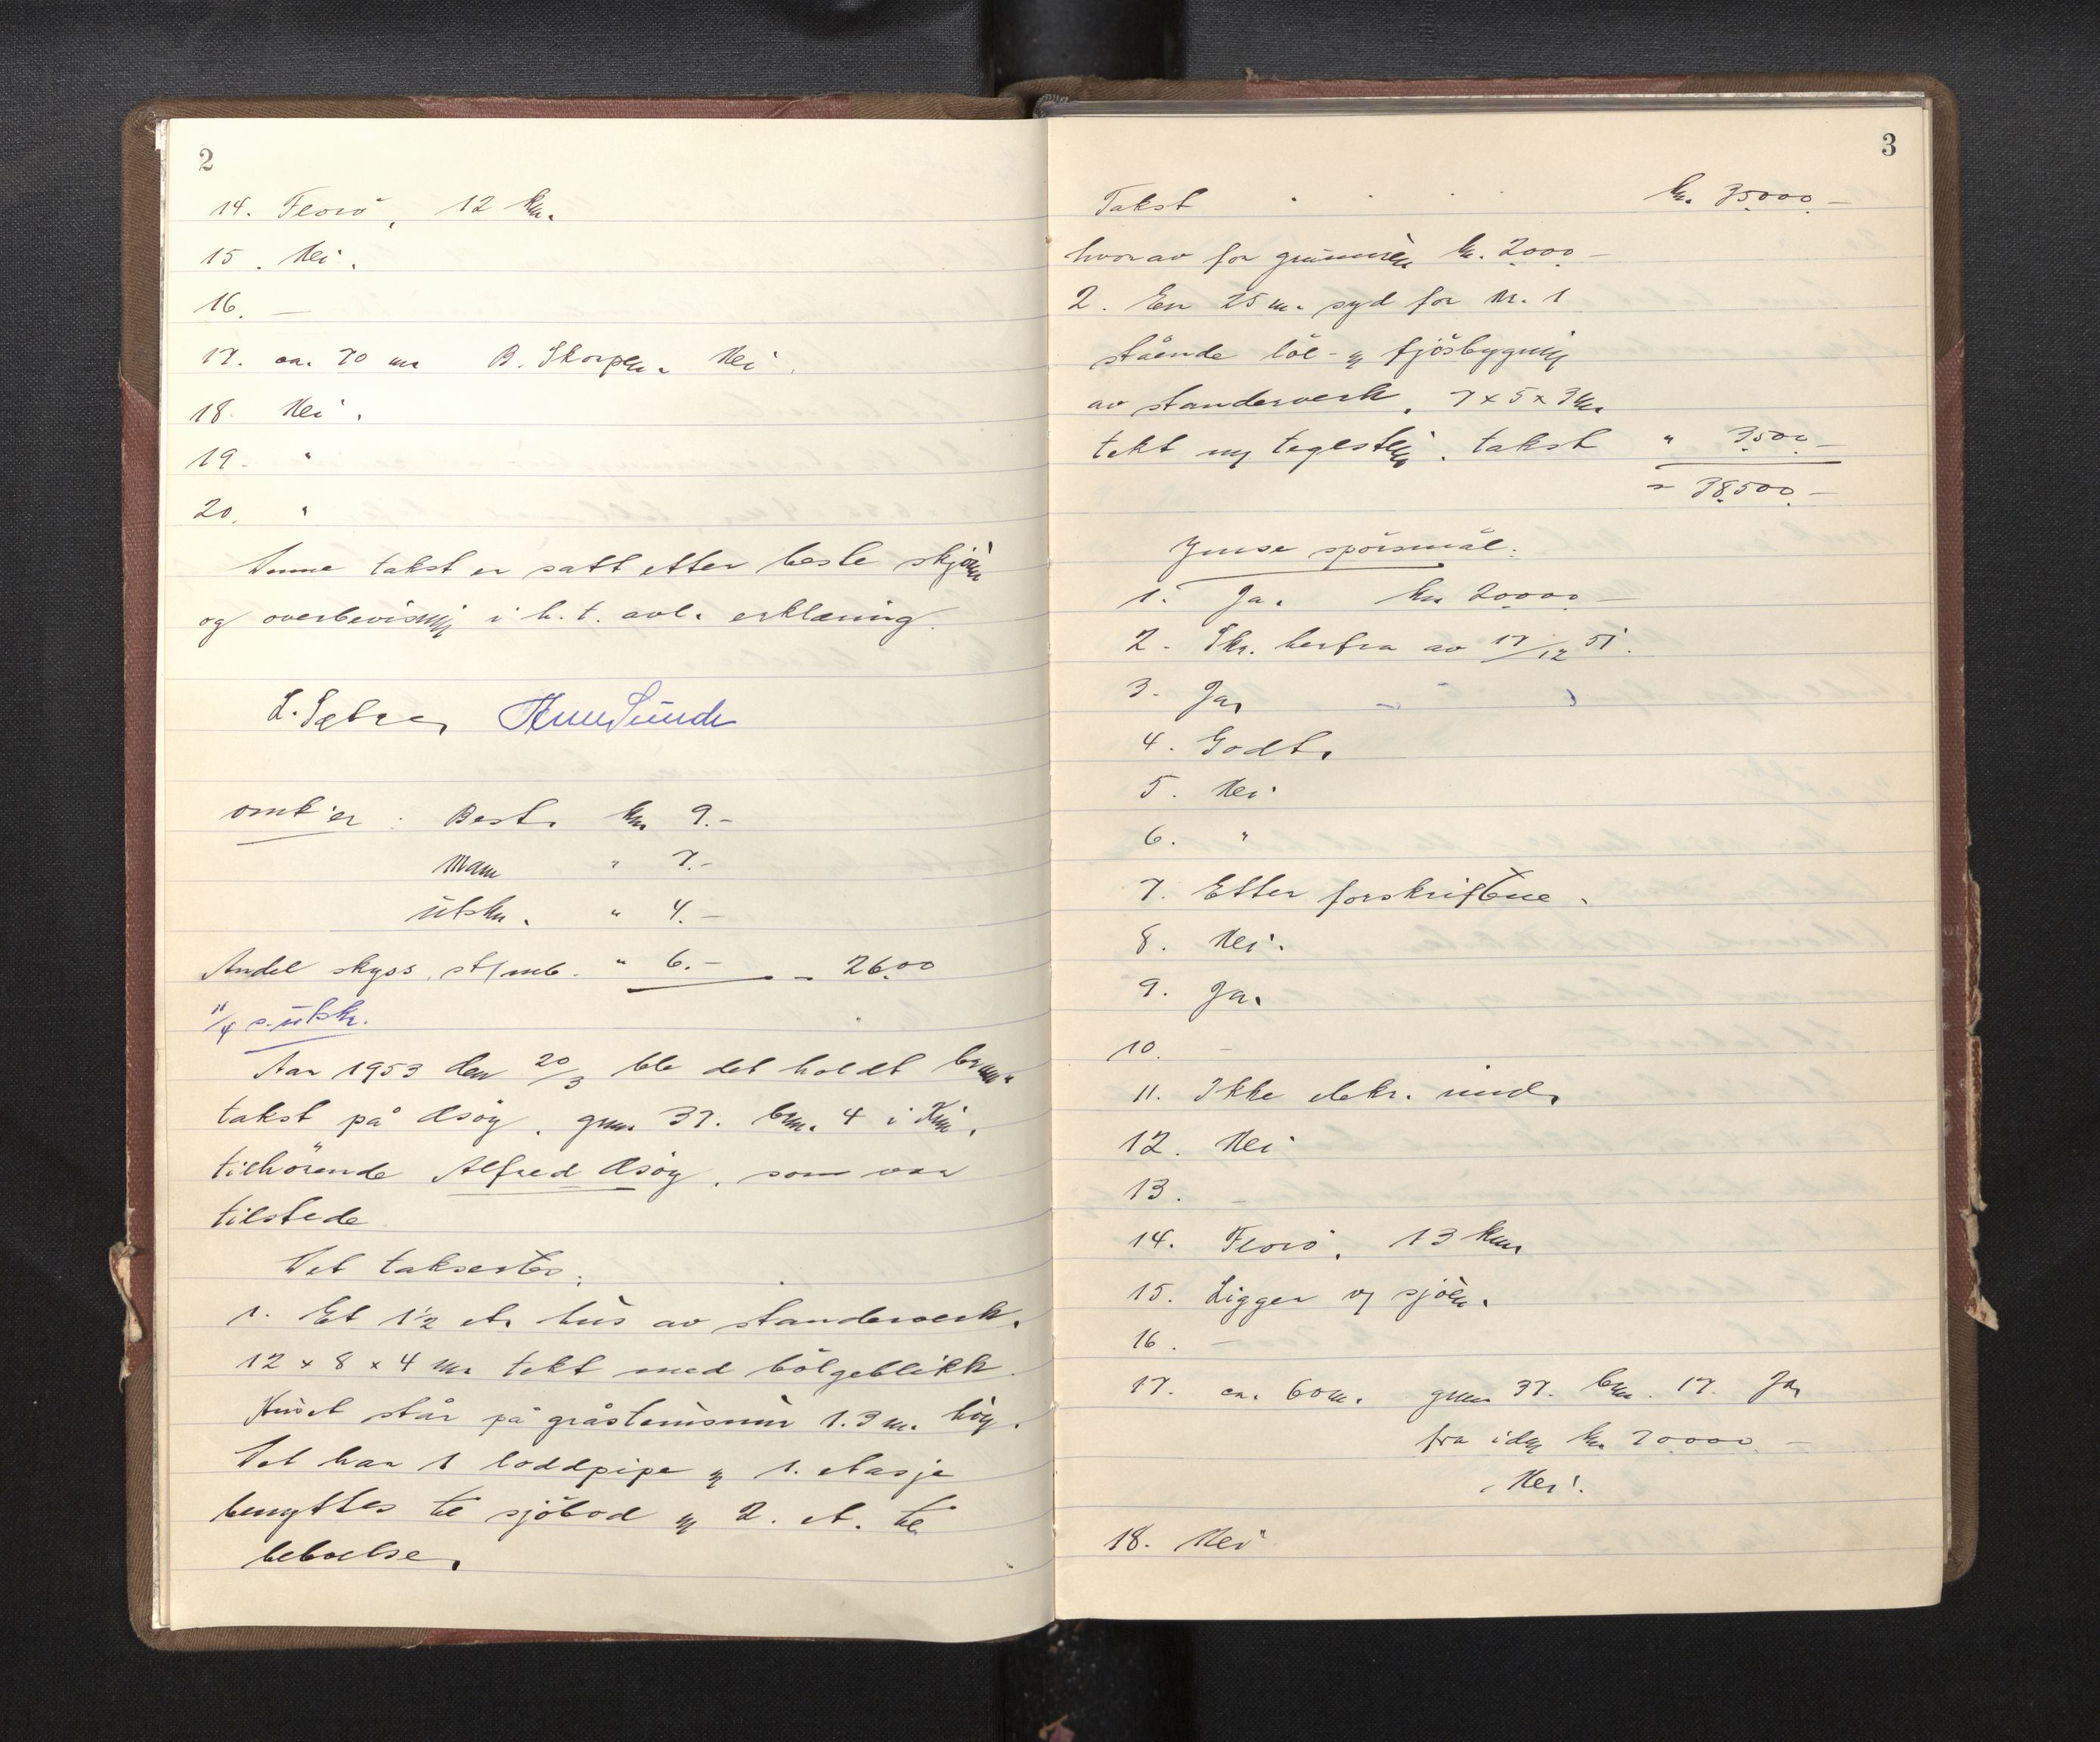 2
14. Florö, 12 km.
15. Nei.
16. —
17. ca. 70 m B. Skorpen. Nei.
18. Nei.
19. "
20. "
Denne takst er satt etter beste skjönn
og overbevisning i h. t. avl. erklæring.
L. Sætren
omk'er: Best. kr. 9.-
Mann " 7.-
utskr. " 4.-
Andel skyss, st/mb. " 6.- = 26.00
11/4 s. utskr.
Aar 1953 den 20/3 ble det holdt brann-
takst på Osöy, gnr. 37. bnr. 4 i Kinn,
tilhörende Alfred Osöy, som var
tilstede
Det takseres:
1. Et 1½ et. hus av standerverk.
12 x 8 x 4 m. tekt med bölgeblikk.
Huset står på gråstensmur 1.3 m. höy.
Det har 1 loddpipe og 1. etasje
benyttes til sjöbod og 2. et. til
beboelse.
3
Takst . . . . kr. 35000.-
hvorav for grunnmuren kr. 2000.-
2. En 25 m. syd for nr. 1
stående löe- og fjösbygning
av standerverk, 7 x 5 x 3 m.
tekt m/ teglstein. takst " 3500.-
= 38500.-
Ymse spörsmål.
1. Ja. kr. 20000.-
2. Skr. herfra av 17/12 51.
3. Ja,
4. Godt.
5. Nei
6. "
7. Etter forskriftene.
8. Nei.
9. Ja.
10. -
11. Ikke elekr. innl.
12. Nei
13. -
14. Florö, 13 km
15. Ligger v/ sjöen.
16. —
17. ca. 60 m. gnr. 37. bnr. 17. Ja,
kr. 20000.-
Nei.
18. Nei